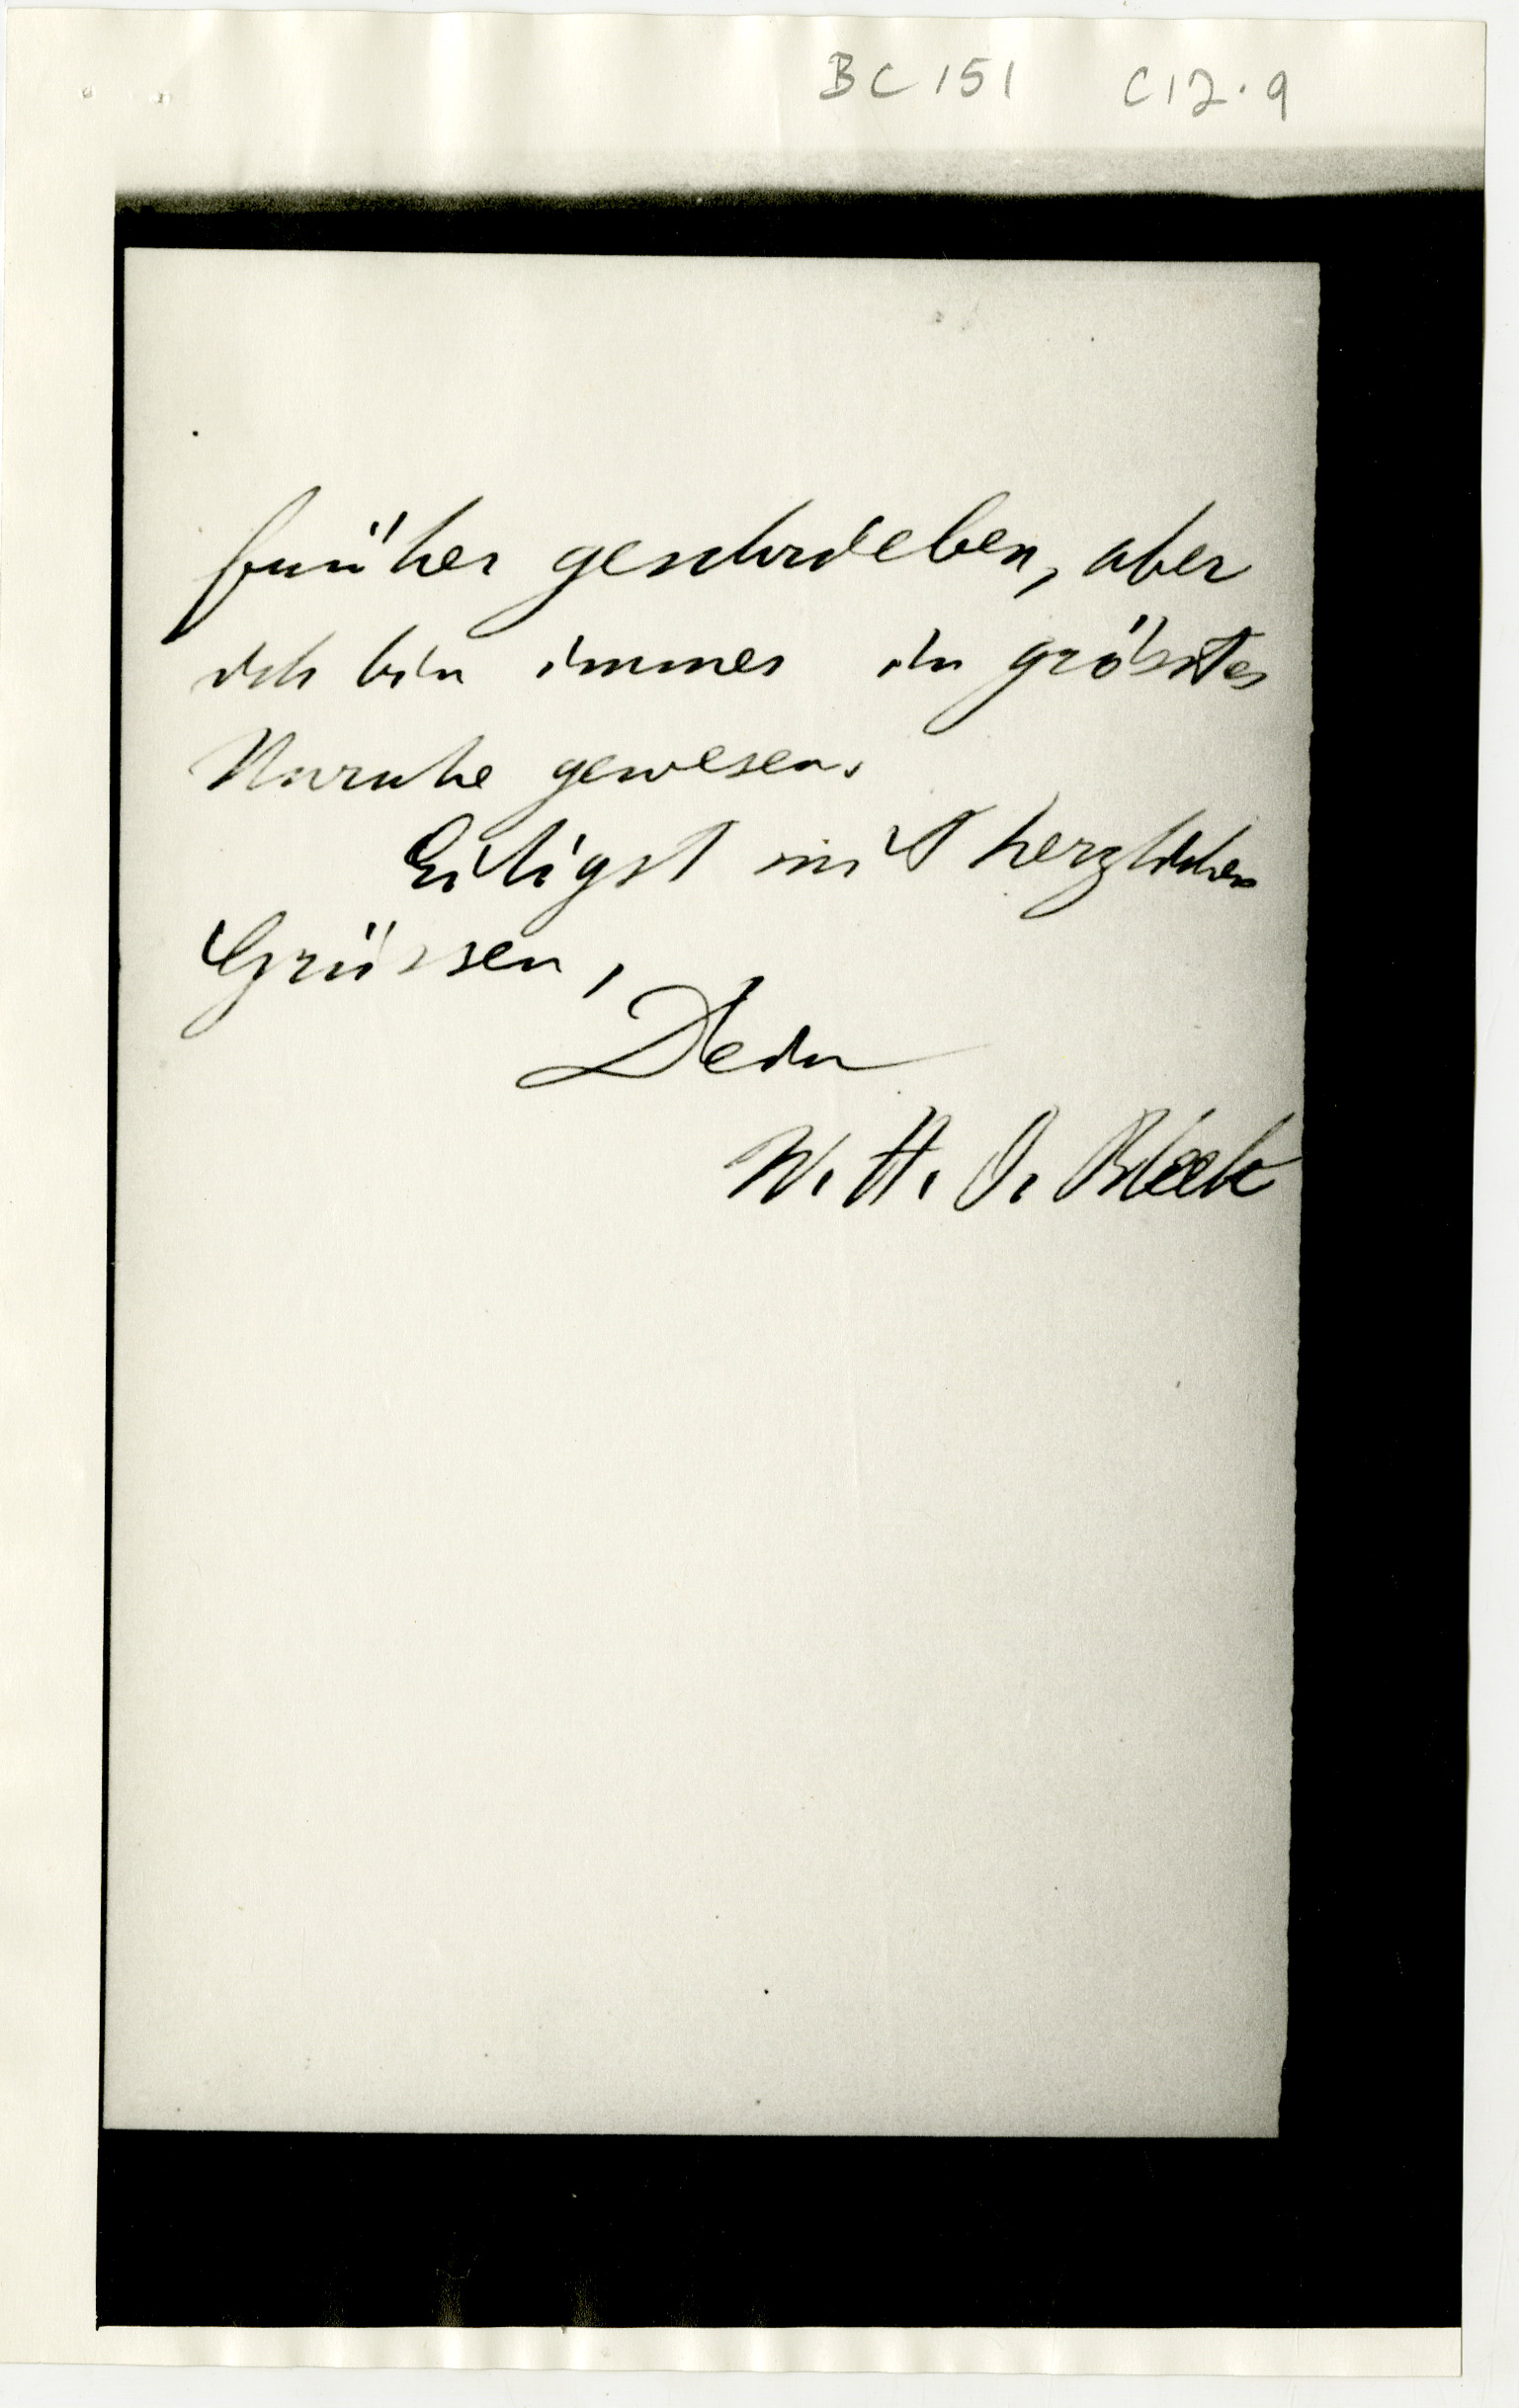 BC 151 C12.9
früher geschrieben, aber
ich bin immer in grösster
Unruhe gewesen.
Eiligst mit herzlichen
Grüssen,
Dein
W. H. I. Bleek